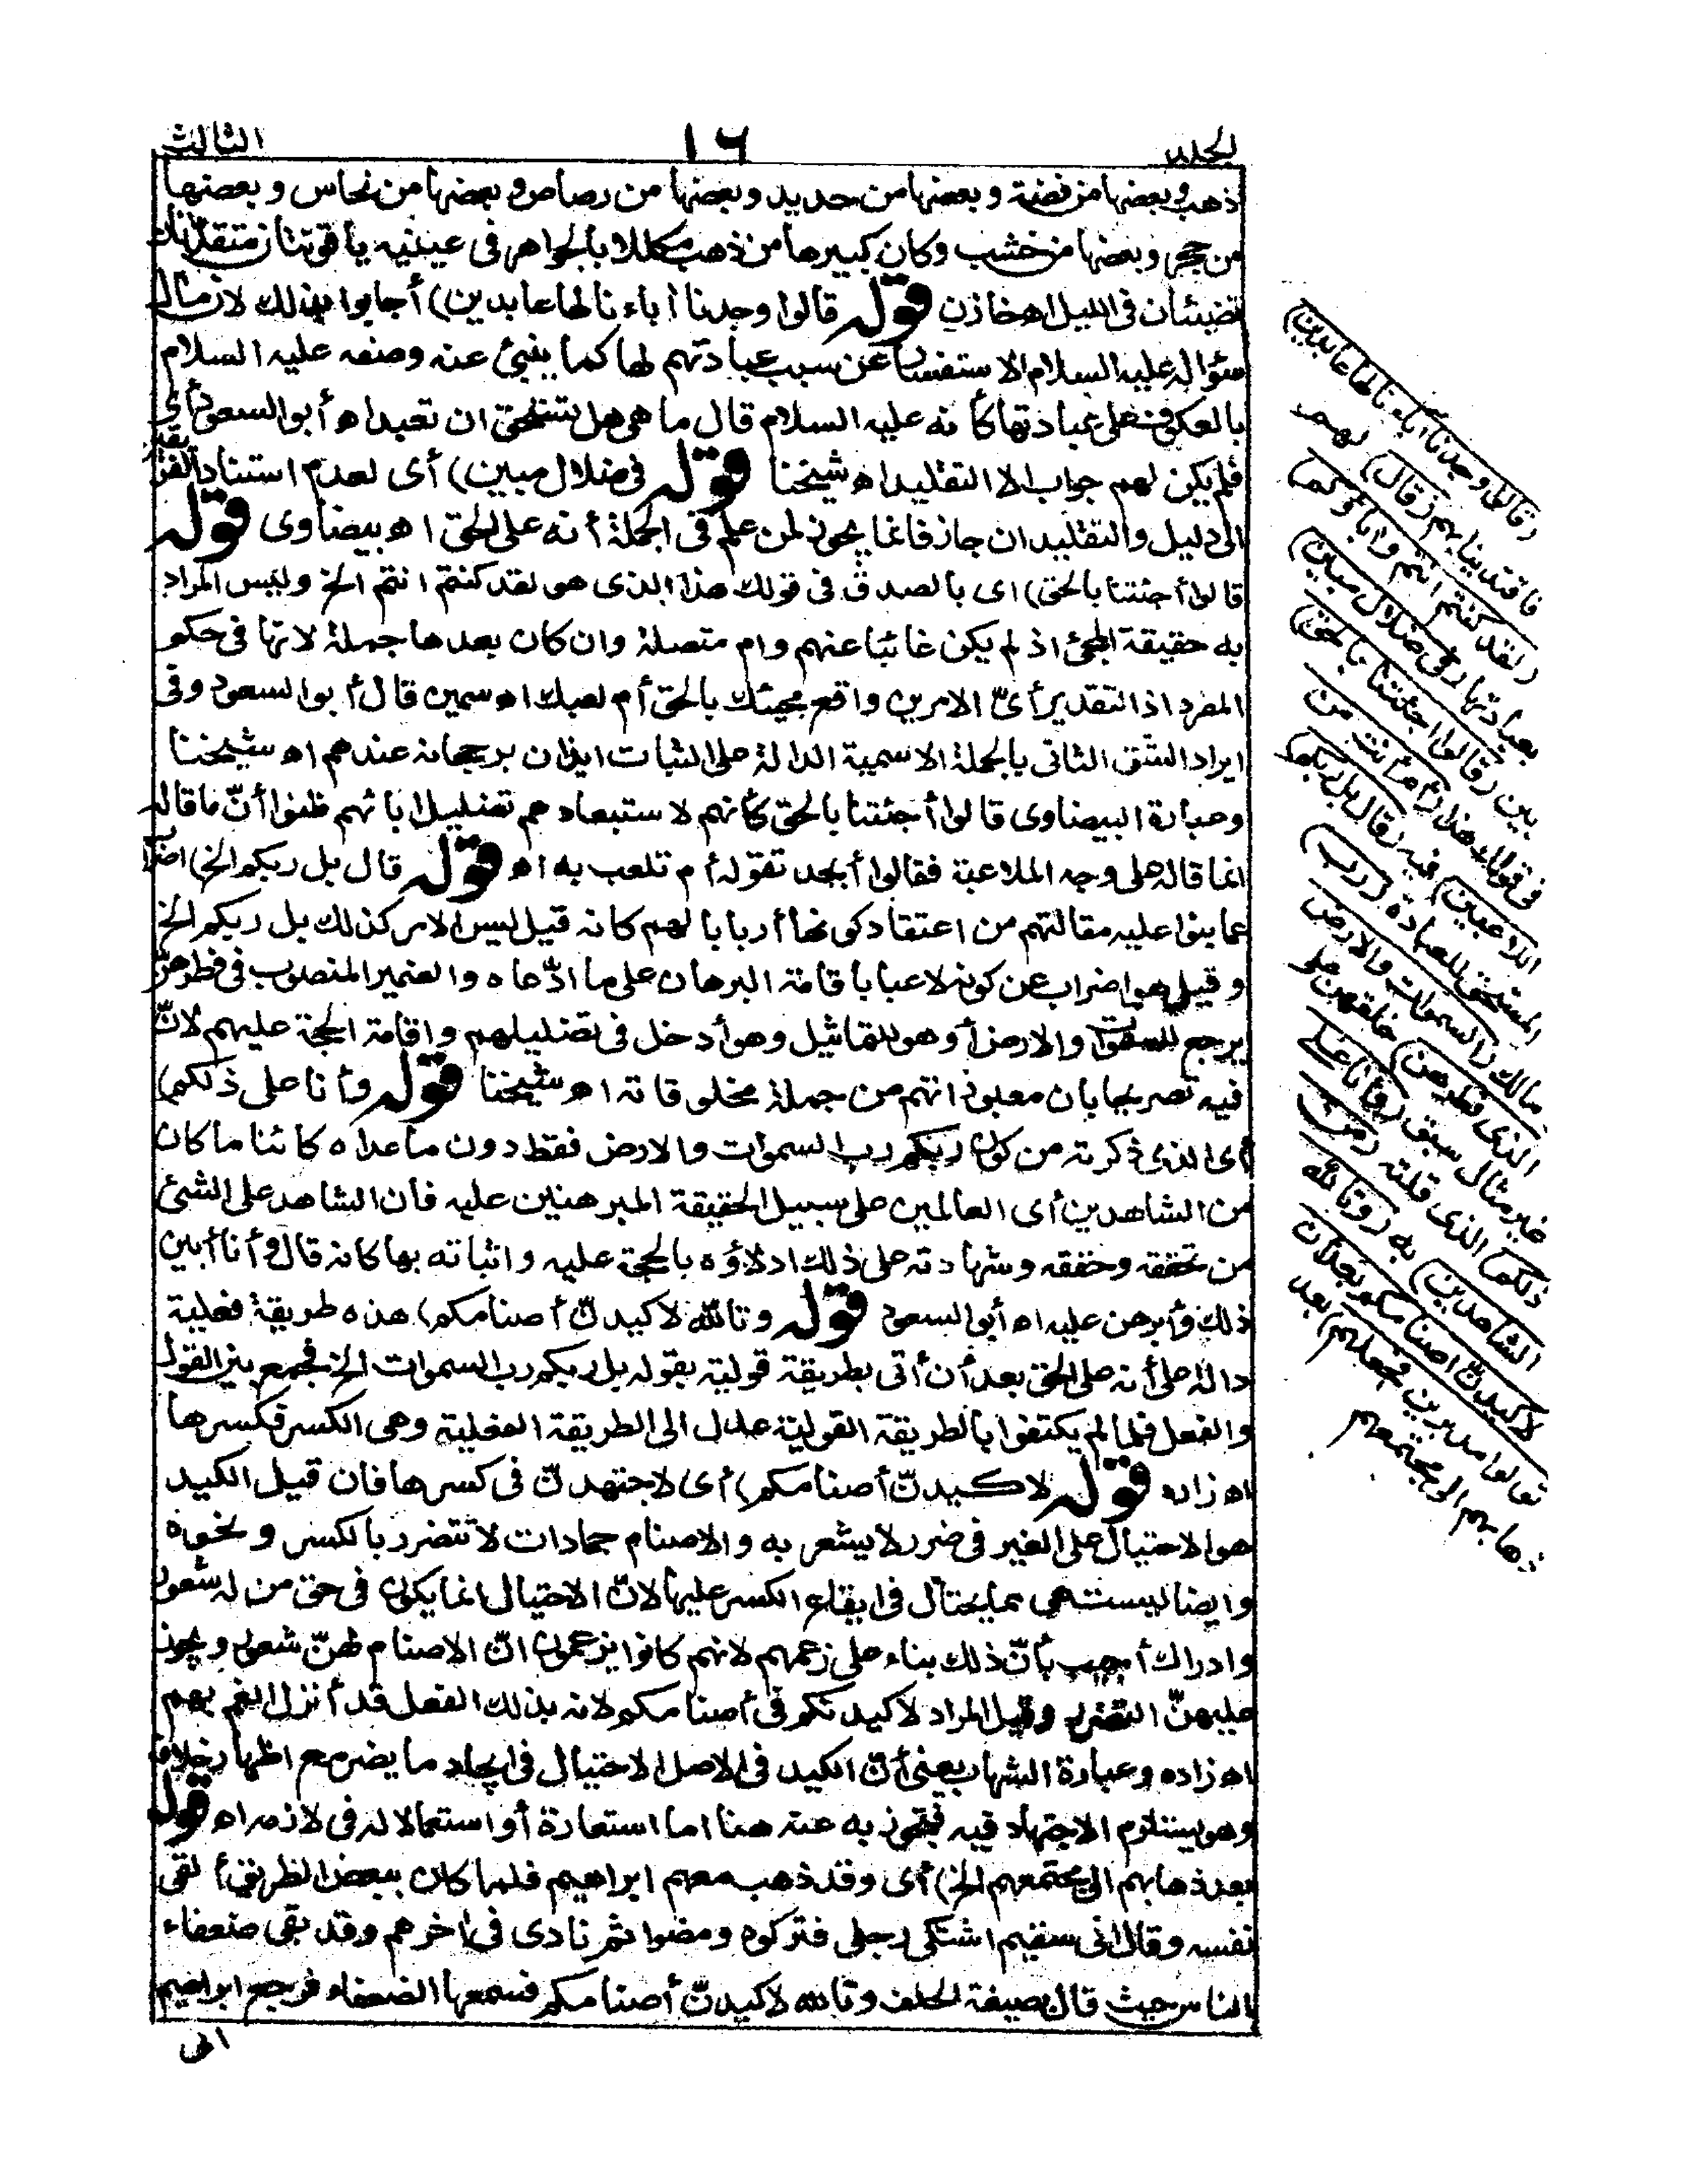 الجلد
١٦
الثالث
ذهب وبعضها من فضة وبعضها من حديد وبعضها من رصاص وبعضها من نحاس وبعضها
من حجر وبعضها من خشب وكان كبيرها من ذهب مكللا بالجواهر فى عينيه ياقوتتان متقدتان
تضيئان فى الليل اه خازن قوله قالوا وجدنا أباءنا لها عابدين) أجابوا بذلك لان مآل
سؤاله عليه السلام الاستفسار عن سبب عبادتهم لها كما ينبئ عنه وصفه عليه السلام
بالعكوف على عبادتها كأنه عليه السلام قال ما هى هل تستحق ان تعبد اه أبو السعود أى
فلم يكن لهم جواب الا التقليد اه شيخنا قوله فى ضلال مبين) أى لعدم استناد الفريقين
الى دليل والتقليد ان جاز فانما يجوز لمن علم فى الجملة أنه على الحق اه بيضاوى قوله
قالوا أجئتنا بالحق) اى بالصدق فى قولك هذا الذى هو لقد كنتم انتم الخ وليس المراد
به حقيقة المجئ اذ لم يكن غائبا عنهم وام متصلة وان كان بعدها جملة لانها فى حكم
المفرد اذ التقدير أىّ الامرين واقع مجيئك بالحق أم لعبك اه سمين قال أبو السعود وفى
ايراد الشق الثانى بالجملة الاسمية الدالة على الثبات ايذان برجحانه عندهم اه شيخنا
وعبارة البيضاوى قالوا أجئتنا بالحق كأنهم لاستبعادهم تضليل ابائهم ظنوا أنّ ما قاله
انما قاله على وجه الملاعبة فقالوا أبجد تقوله أم تلعب به اه قوله قال بل ربكم الخ) اضراب
عما بنوا عليه مقالتهم من اعتقاد كونها أربابا لهم كانه قيل ليس الامر كذلك بل ربكم الخ
وقيل هو اضراب عن كونه لاعبا باقامة البرهان على ما ادّعاه والضمير المنصوب فى فطرهنّ
يرجع للسموات والارض أو هو للتماثيل وهو أدخل فى تضليلهم واقامة الحجة عليهم لانّ
فيه تصريحا بان معبوداتهم من جملة مخلوقاته اه شيخنا قوله وأنا على ذلكم)
أى الذى ذكرته من كون ربكم رب السموات والارض فقط دون ما عداه كائنا ما كان
من الشاهدين أى العالمين على سبيل الحقيقة المبرهنين عليه فان الشاهد على الشئ
من تحققه وحققه وشهادته على ذلك ادلاؤه بالحجة عليه واثباته بها كانه قال وأنا أبين
ذلك وأبرهن عليه اه أبو السعود قوله وتالله لاكيدنّ أصنامكم) هذه طريقة فعلية
دالة على أنه على الحق بعد أن أتى بطريقة قولية بقوله بل ربكم رب السموات الخ فجمع بين القول
والفعل فلما لم يكتفوا بالطريقة القولية عدل الى الطريقة الفعلية وهى الكسر فكسرها
اه زاده قوله لاكيدنّ أصنامكم) أى لاجتهدنّ فى كسرها فان قيل الكيد
هو الاحتيال على الغير فى ضرر لا يشعر به والاصنام جمادات لا تتضرر بالكسر ونحوه
وايضا ليست هى مما يحتال فى ايقاع الكسر عليها لانّ الاحتيال انما يكون فى حق من له شعور
وادراك أجيب بأنّ ذلك بناء على زعمهم لانهم كانوا يزعمون انّ الاصنام لهنّ شعور ويجوز
عليهنّ التضرر وقيل المراد لاكيدنكم فى أصنامكم لانه بذلك الفعل قد أنزل الغم بهم
اه زاده وعبارة الشهاب يعنى أنّ الكيد فى الاصل الاحتيال فى ايجاد ما يضر مع اظهار خلافه
وهو يستلزم الاجتهاد فيه فتجوز به عنه هنا اما استعارة أو استعمالا له فى لازمه اه قوله
بعد ذهابهم الى مجتمعهم الخ) أى وقد ذهب معهم ابراهيم فلما كان ببعض الطريق ألقى
نفسه وقال انى سقيم اشتكى رجلى فتركوه ومضوا ثم نادى فى اخرهم وقد بقى ضعفاء
الناس حيث قال بصيغة الحلف وتالله لاكيدنّ أصنامكم فسمعها الضعفاء فرجع ابراهيم
الى
(قالوا وجدنا أباءنا لها عابدين)
فاقتدينا بهم (قال) لهم
(لقد كنتم انتم واباؤكم)
بعبادتها (فى ضلال مبين)
بين (قالوا أجئتنا بالحق)
فى قولك هذا (أم انت من
اللاعبين) فيه (قال بل ربكم)
المستحق للعبادة (رب)
مالك (السموات والارض
الذى فطرهن) خلقهن على
غير مثال سبق (وأنا على
ذلكم) الذى قلته (من
الشاهدين) به (وتالله
لاكيدنّ أصنامكم بعد أن
تولوا مدبرين فجعلهم) بعد
ذهابهم الى مجتمعهم